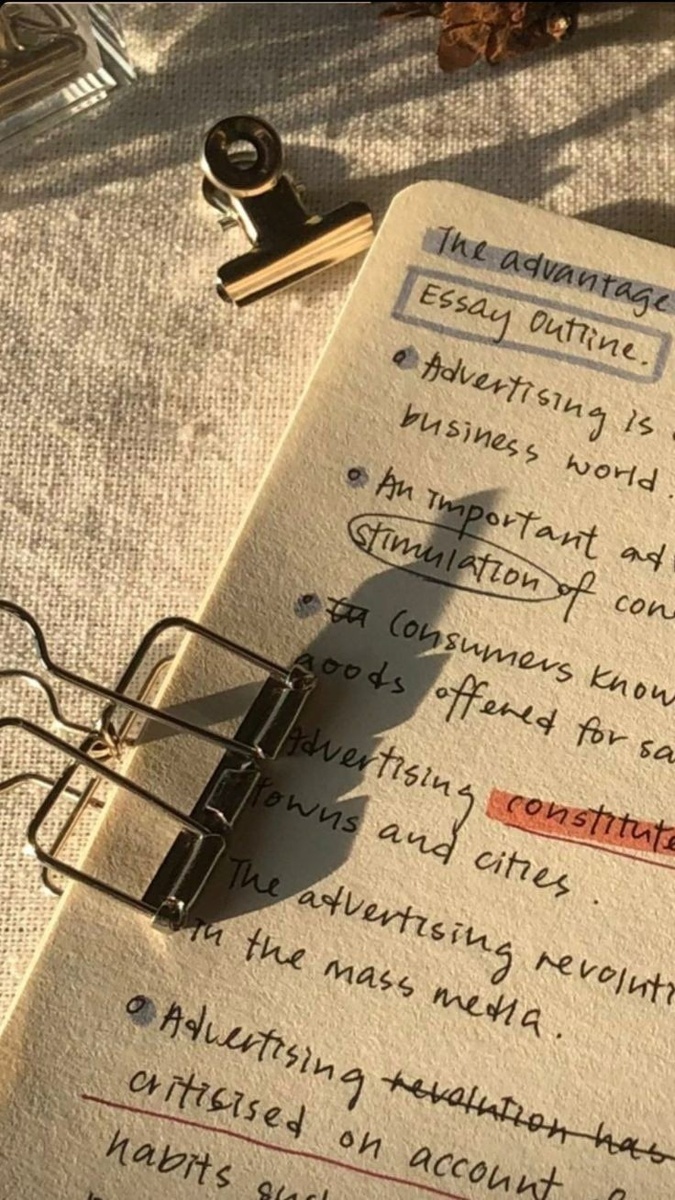 The advantage
Essay Outline.
Advertising is
business world.
An important adv
stimulation of con
In Consumers know
goods offered for sa
Advertising constitute
towns and cities.
The advertising revoluti
in the mass media.
Advertising revolution has
critisised on account
habits